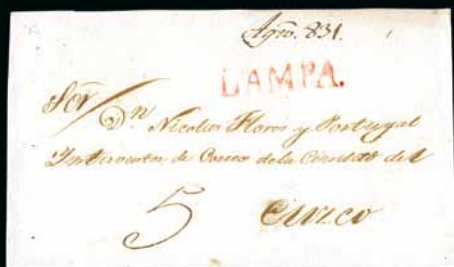 Agto. 831.
LAMPA.
Sor
Dn Nicolas Flores y Portugal
de Correos de la Ciudad del
5 Cuzco